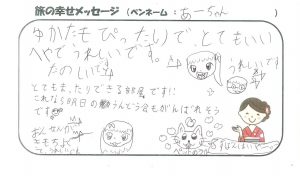 旅の幸せメッセージ (ペンネーム:あーちゃん)
ゆかたもぴったりで、とてもいい
へやでうれしいです。
たのしいです
うれしいです
とてもまったりできる部屋です!!
これなら明日のうんどう会もがんばれそう
です
おんせんが